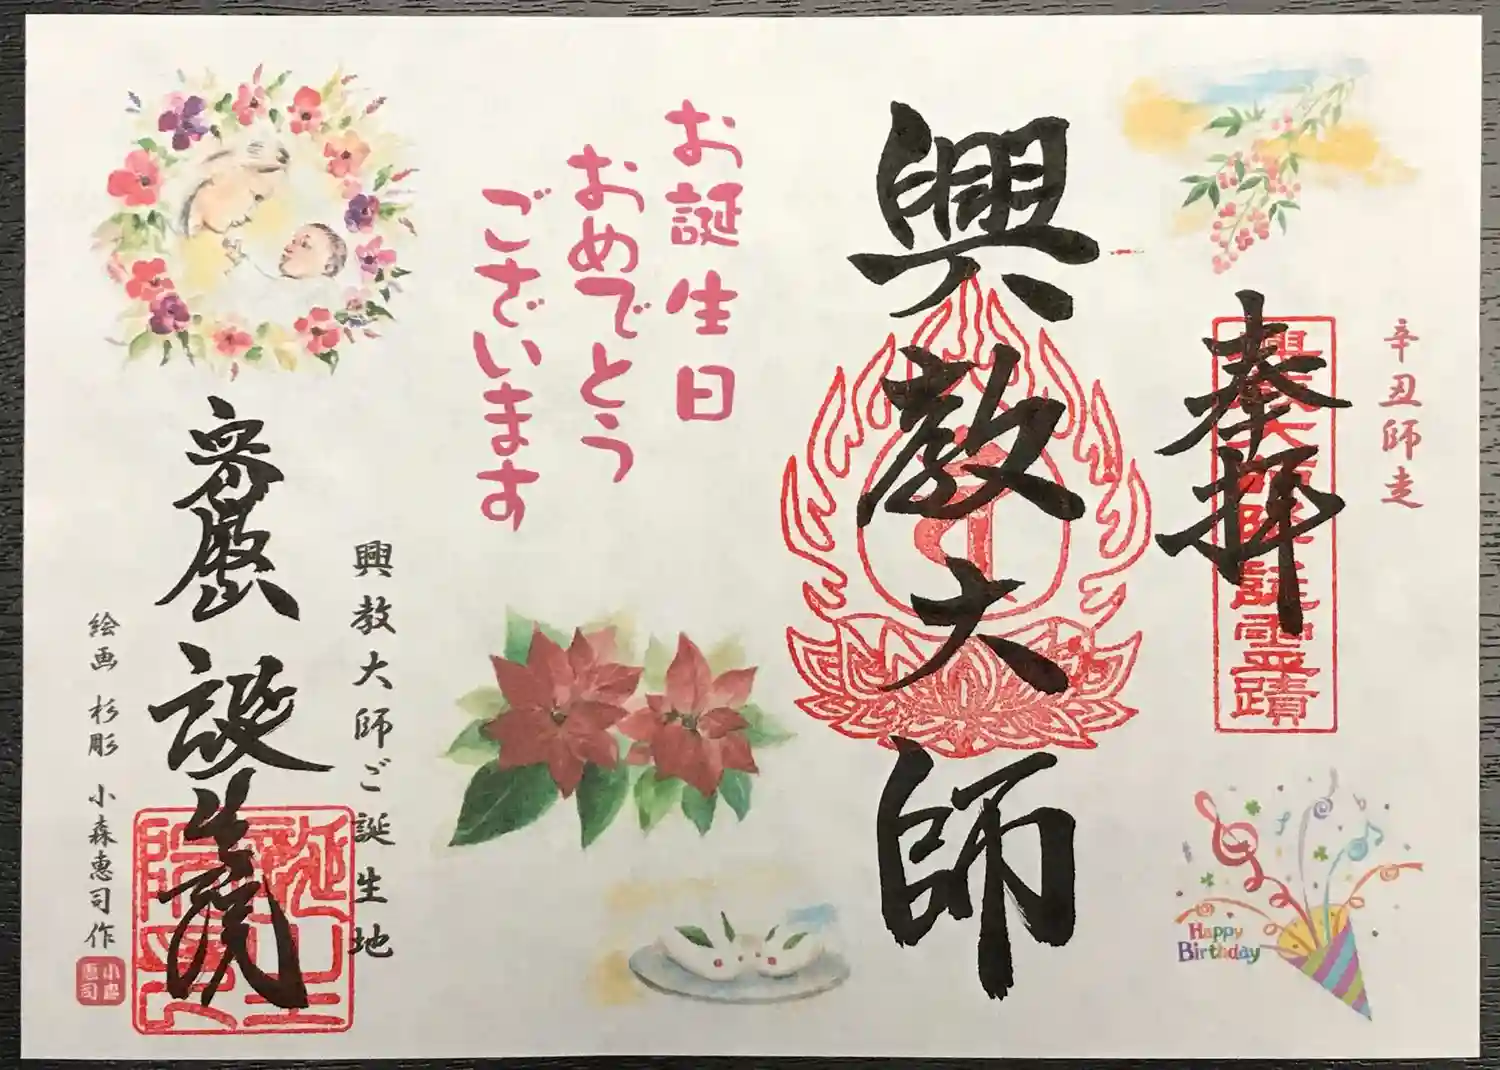 辛丑師走
奉拝
興教大師
お誕生日
おめでとう
ございます
興教大師ご誕生地
密嚴誕生院
絵画 杉彫 小森恵司作
Happy
Birthday